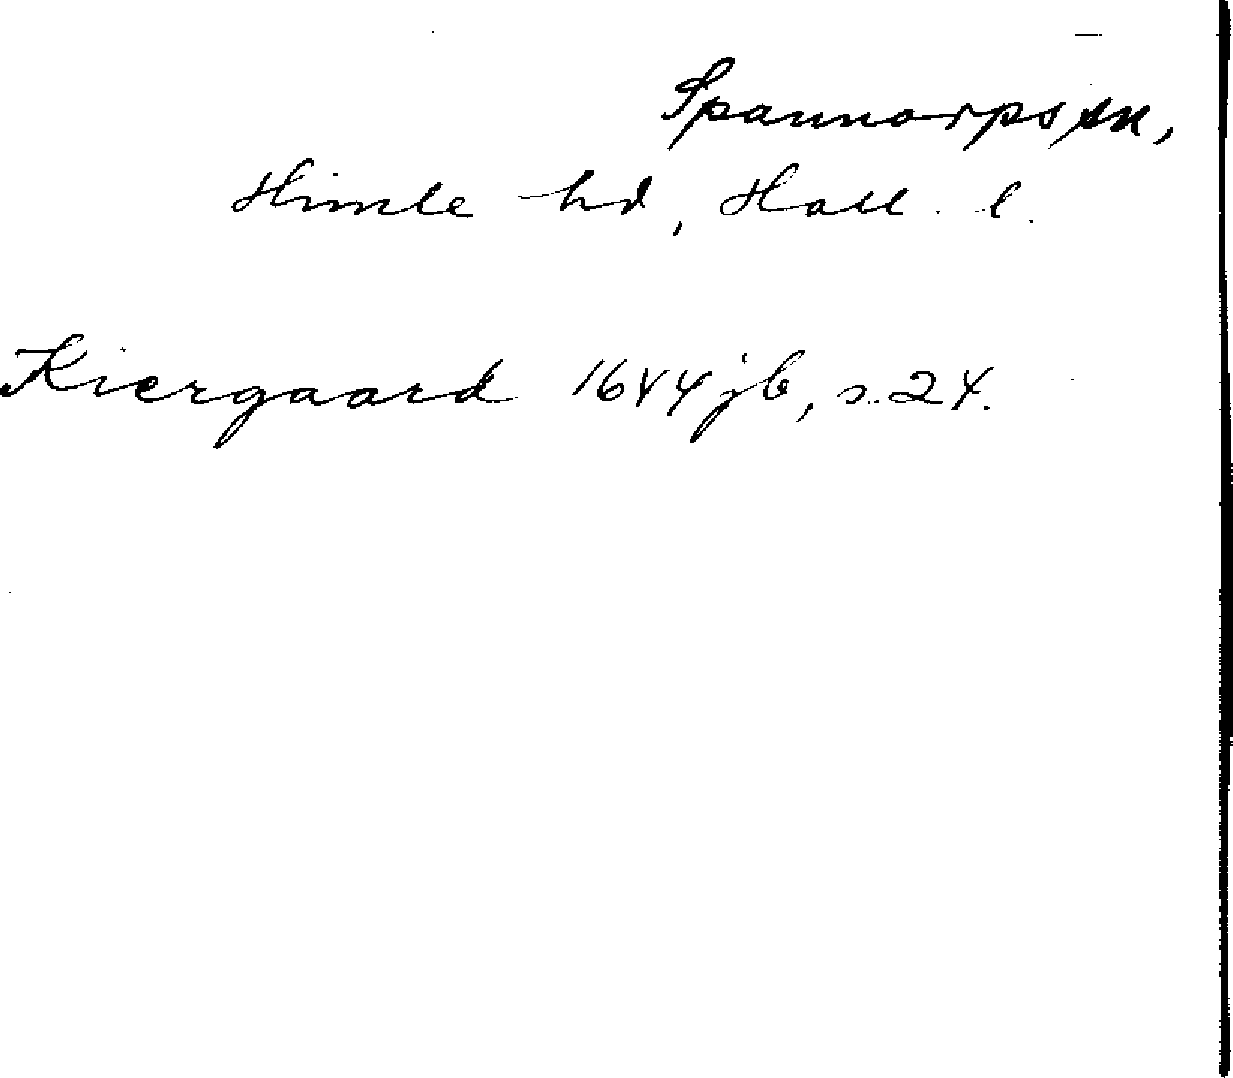 Spannarps sn,
Himle hd, Hall. l.
Kiergaard 1644 jb, s. 24.